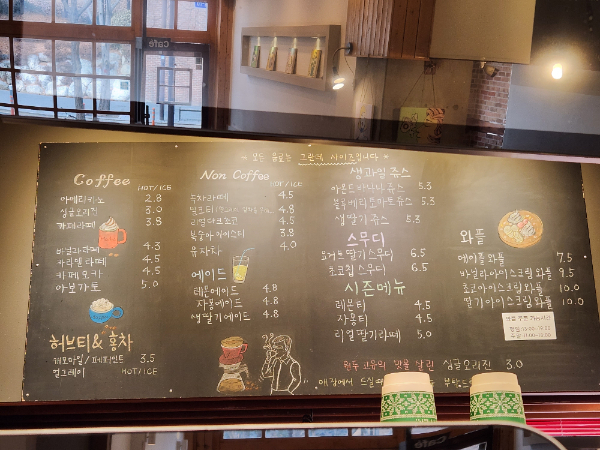 모든 음료는 그란데 사이즈입니다
Coffee
HOT/ICE
아메리카노 2.8
싱글오리진 3.0
카페라떼 3.8
바닐라라떼 4.3
카라멜라떼 4.5
카페모카 4.5
아포가토 5.0
허브티 & 홍차
캐모마일 / 페퍼민트 3.5
얼그레이 HOT/ICE
Non Coffee
HOT/ICE
녹차라떼 4.5
밀크티 4.8
리얼다크초코 4.5
복숭아 아이스티 3.8
유자차 4.0
에이드
레몬에이드 4.8
자몽에이드 4.8
생딸기에이드 4.8
생과일 쥬스
아몬드바나나쥬스 5.3
블루베리토마토쥬스 5.3
생딸기쥬스 5.3
스무디
요거트딸기스무디 6.5
초코칩스무디 6.5
시즌메뉴
레몬티 4.5
자몽티 4.5
리얼딸기라떼 5.0
와플
애이플와플 7.5
바닐라아이스크림와플 9.5
초코아이스크림와플 10.0
딸기아이스크림와플 10.0
원두 고유의 맛을 살린 싱글오리진 3.0
매장에서 드실